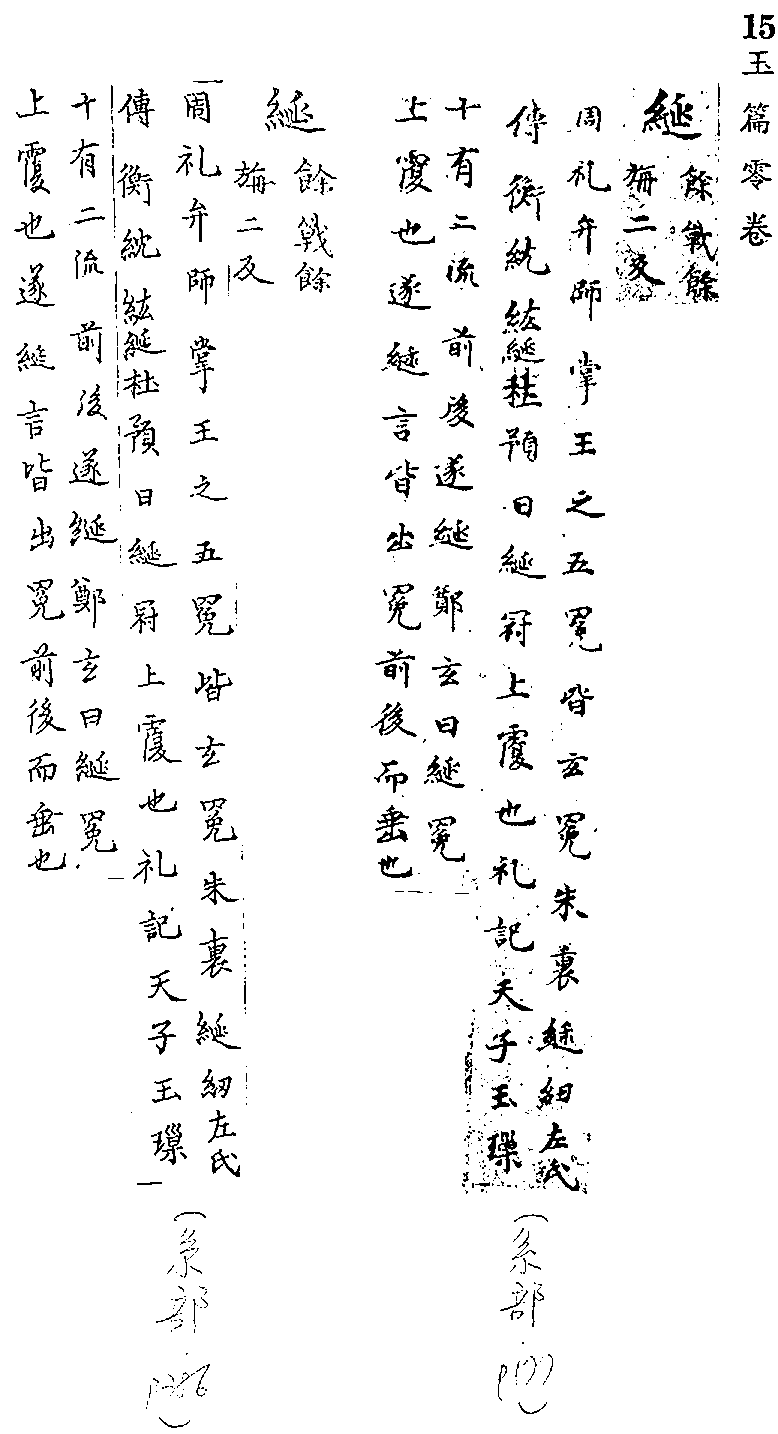 15 玉篇零卷
綖 餘戰餘
旃二反
周礼弁師掌王之五冕皆玄冕朱裏綖紐左氏
傳衡紞紘綖杜預曰綖冠上覆也礼記天子玉璪
十有二流前後遂綖鄭玄曰綖冕
上覆也遂綖言皆出冕前後而垂也
(糸部
綖 餘戰餘
旃二反
周礼弁師掌王之五冕皆玄冕朱裏綖紉左氏
傳衡紞紘綖杜預曰綖冠上覆也礼記天子玉璪
十有二流前後遂綖鄭玄曰綖冕
上覆也遂綖言皆出冕前後而垂也
(糸部